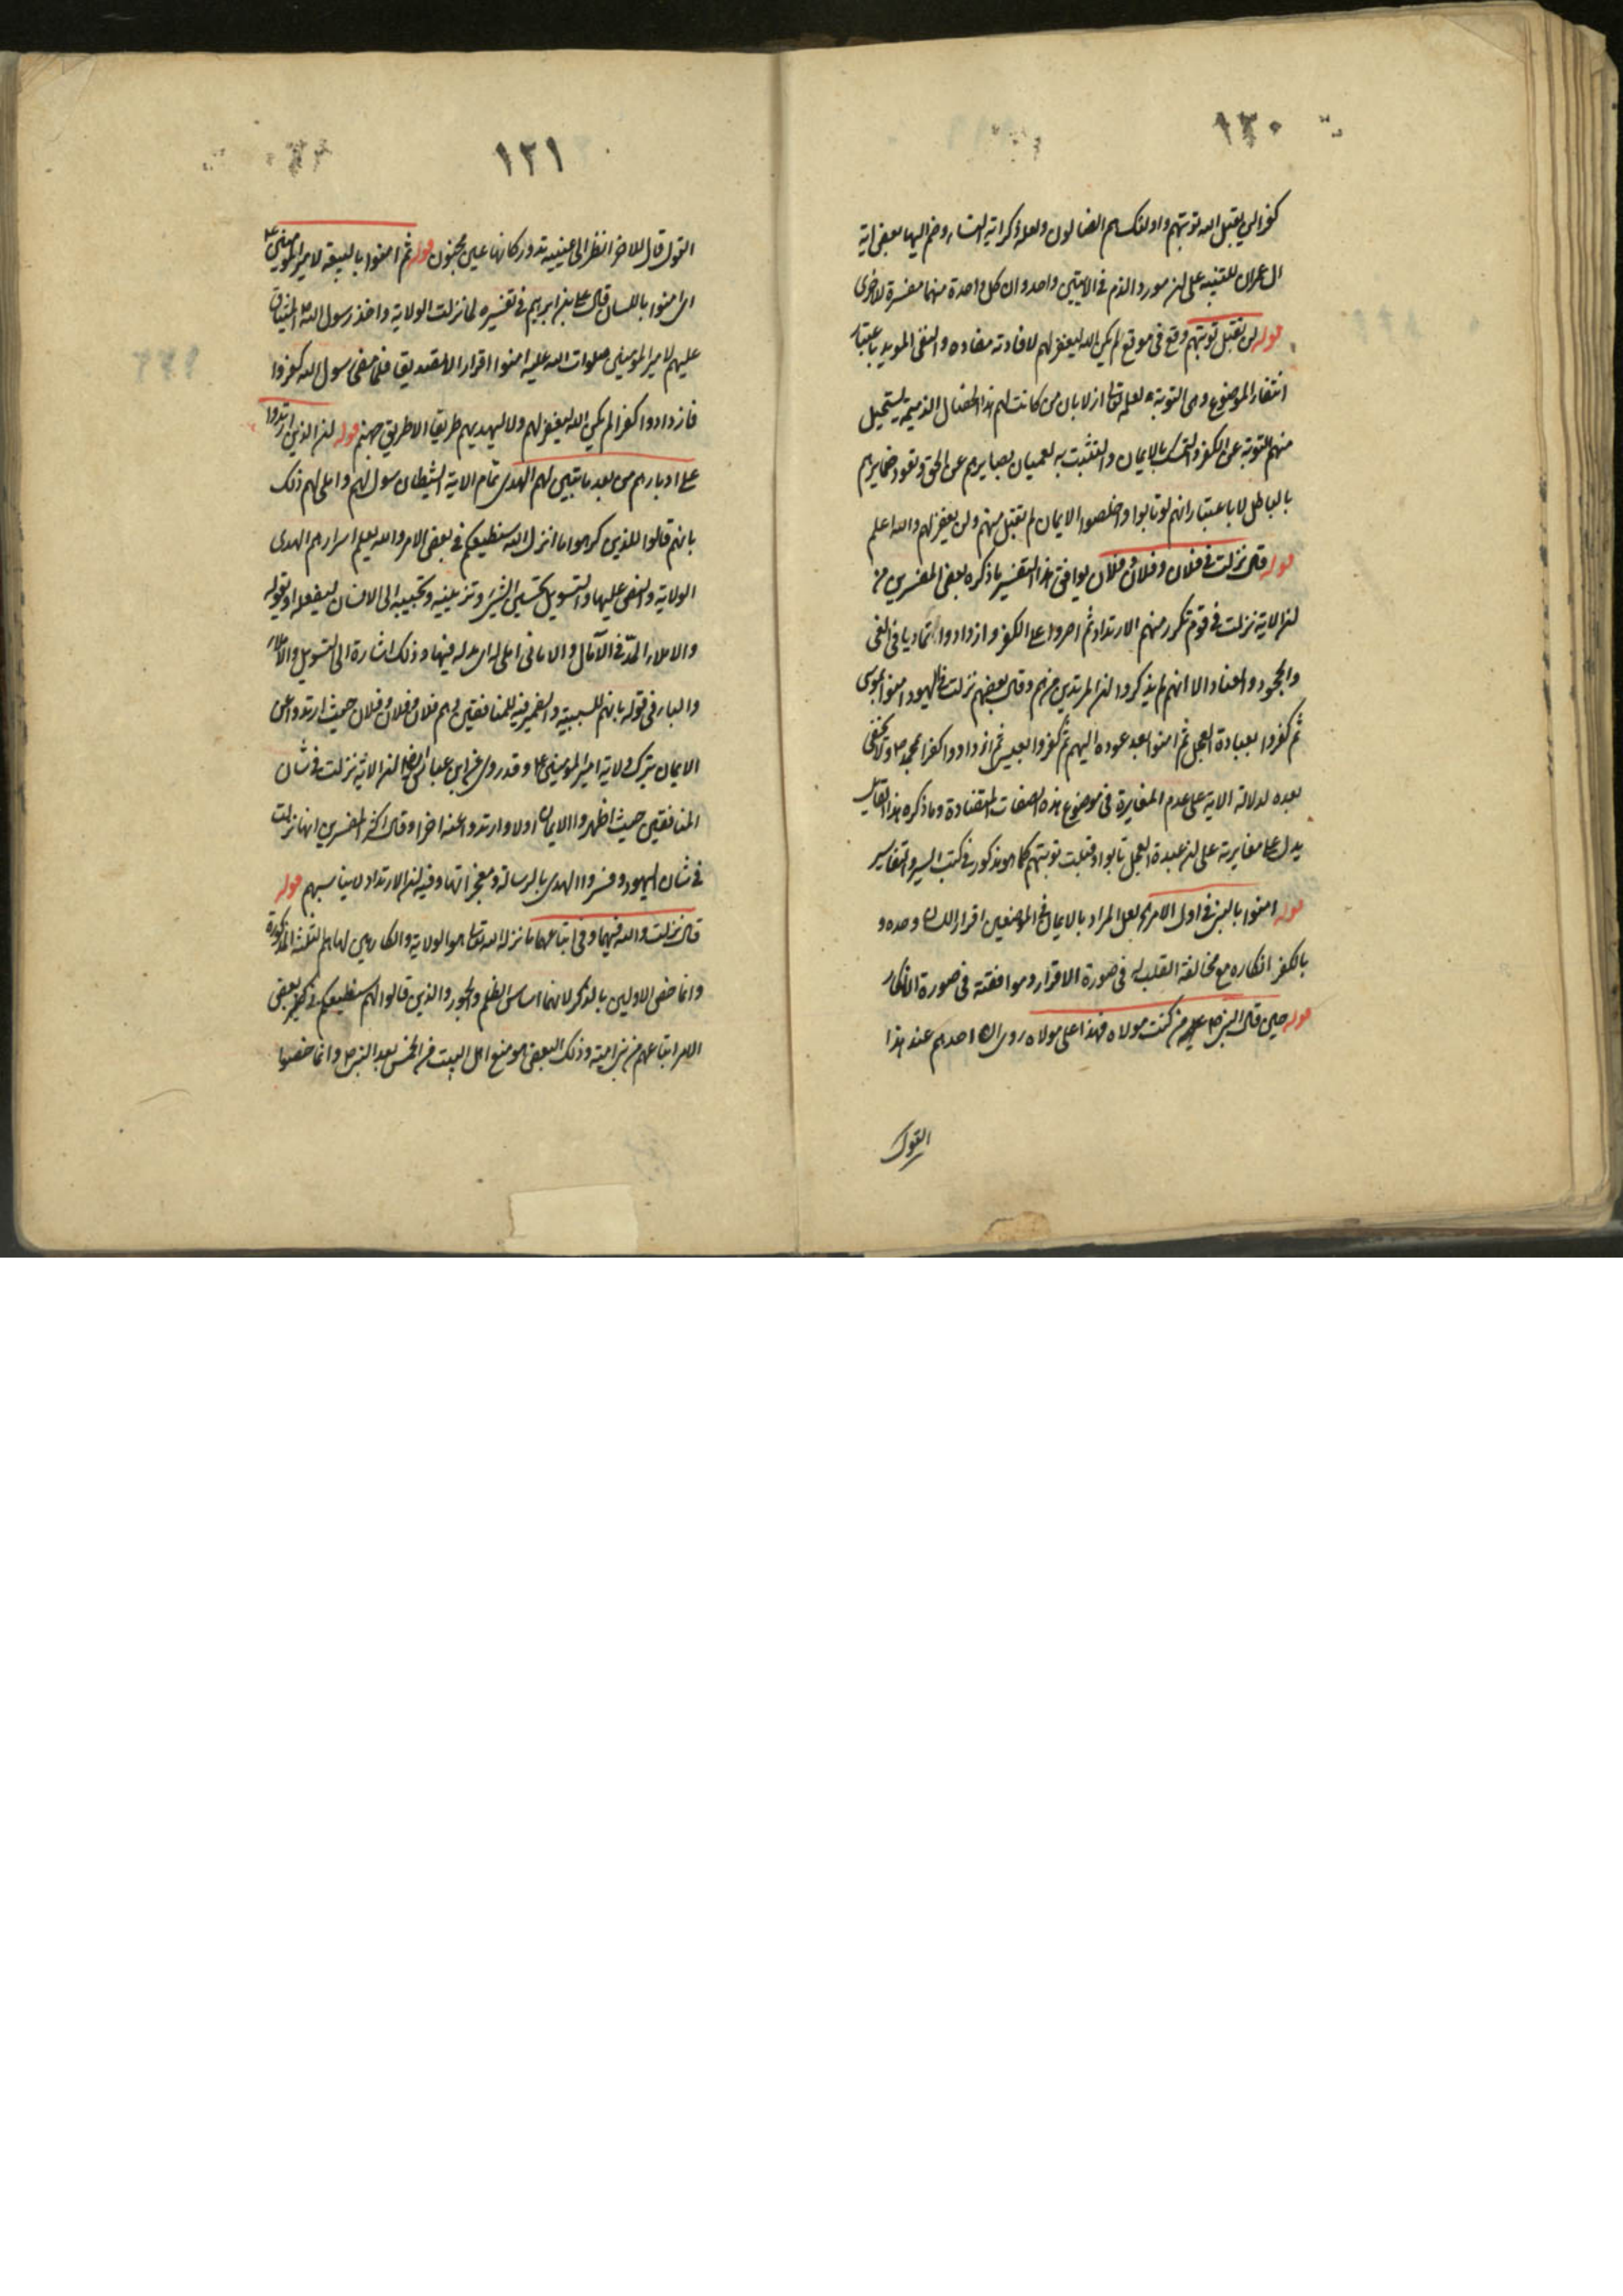 ١٢٠
كفرا لن يقبل الله توبتهم واولئك هم الضالون ولعله ذكر اية النساء وضم اليها بعض اية
ال عمران للتنبيه على ان مورد الذم في الايتين واحد وان كل واحدة منهما مفسرة للاخرى
قوله لن تقبل توبتهم وقع في موقع لم يكن الله ليغفر لهم لافادته مفاده والنفي المويد باعتبار
انتفاء الموضوع وهي التوبة لعلمه تعا ازلا بان من كانت لهم هذه الخصال الذميمة يستحيل
منهم التوبة عن الكفر والتمسك بالايمان والتثبت به لعميان بصايرهم عن الحق وتعود ضمايرهم
بالباطل لا باعتبار انهم لو تابوا واخلصوا الايمان لم تقبل منهم ولن يغفر لهم والله اعلم
قوله قال نزلت في فلان وفلان وفلان يوافق هذا التفسير ما ذكره بعض المفسرين من
ان الاية نزلت في قوم تكرر منهم الارتداد ثم اصروا على الكفر وازدادوا تماديا في الغي
والجحود والعناد الا انهم لم يذكروا ان المرتدين من هم وقال بعضهم نزلت في اليهود امنوا بموسى
ثم كفروا بعبادة العجل ثم امنوا بعد عوده اليهم ثم كفروا بعيسى ثم ازدادوا كفرا بمحمد ص ولا يخفى
بعده لدلالة الاية على عدم المغايرة في موضوع هذه الصفات المتضادة وما ذكره هذا القايل
يدل على مغايرته على ان عبدة العجل تابوا وقبلت توبتهم كما هو مذكور في كتب السير والتفاسير
قوله امنوا بالنبي في اول الامر لعل المراد بالايمان في الموضعين اقرار اللسان وحده و
بالكفر انكاره مع مخالفة القلب له في صورة الاقرار وموافقته في صورة الانكار
قوله حين قال النبي ص من كنت مولاه فهذا علي مولاه روى ان احدهم عند هذا
القول
١٢١
القول قال للاخر انظر الى عينيه تدور كانها عين مجنون قوله ثم امنوا بالبيعة لامير المومنين ع
اى امنوا باللسان قال علي بن ابرهيم في تفسيره لما نزلت الولاية واخذ رسول الله ص الميثاق
عليهم لامير المومنين صلوات الله عليه امنوا اقرارا لا تصديقا فلما مضى رسول الله كفروا
فازدادوا كفرا لم يكن الله ليغفر لهم ولا ليهديهم طريقا الا طريق جهنم قوله ان الذين ارتدوا
على ادبارهم من بعد ما تبين لهم الهدى تمام الاية الشيطان سول لهم واملى لهم ذلك
بانهم قالوا للذين كرهوا ما انزل الله سنطيعكم في بعض الامر والله يعلم اسرارهم الهدى
الولاية والنص عليها والتسويل تحسين الشيء وتزيينه وتحبيبه الى الانسان ليفعله او يقوله
والاملاء المد في الآمال والاماني املى له اى مد له فيها وذلك اشارة الى التسويل والاملاء
والباء في قوله بانهم للسببية والضمير فيه للمنافقين وهم فلان وفلان وفلان حيث ارتدوا عن
الايمان بترك ولاية امير المومنين ع وقد روى عن ابن عباس ايضا ان الاية نزلت في شان
المنافقين حيث اظهروا الايمان اولا وارتدوا عنه اخرا وقال اكثر المفسرين انها نزلت
في شان اليهود وفسروا الهدى بالرسالة ومعجزاتها وفيه ان الارتداد لا يناسبهم قوله
قال نزلت والله فيهما وفي اتباعهما ما نزله الله تعا هو الولاية والكارهين لها هم الثلثة المذكورة
وانما خص الاولين بالذكر لانهما اساس الظلم والجور والذين قالوا لهم سنطيعكم في بعض
الامر اتباعهم من بني امية وذلك البعض هو منع اهل البيت من الخمس بعد النبي ص وانما خصوا